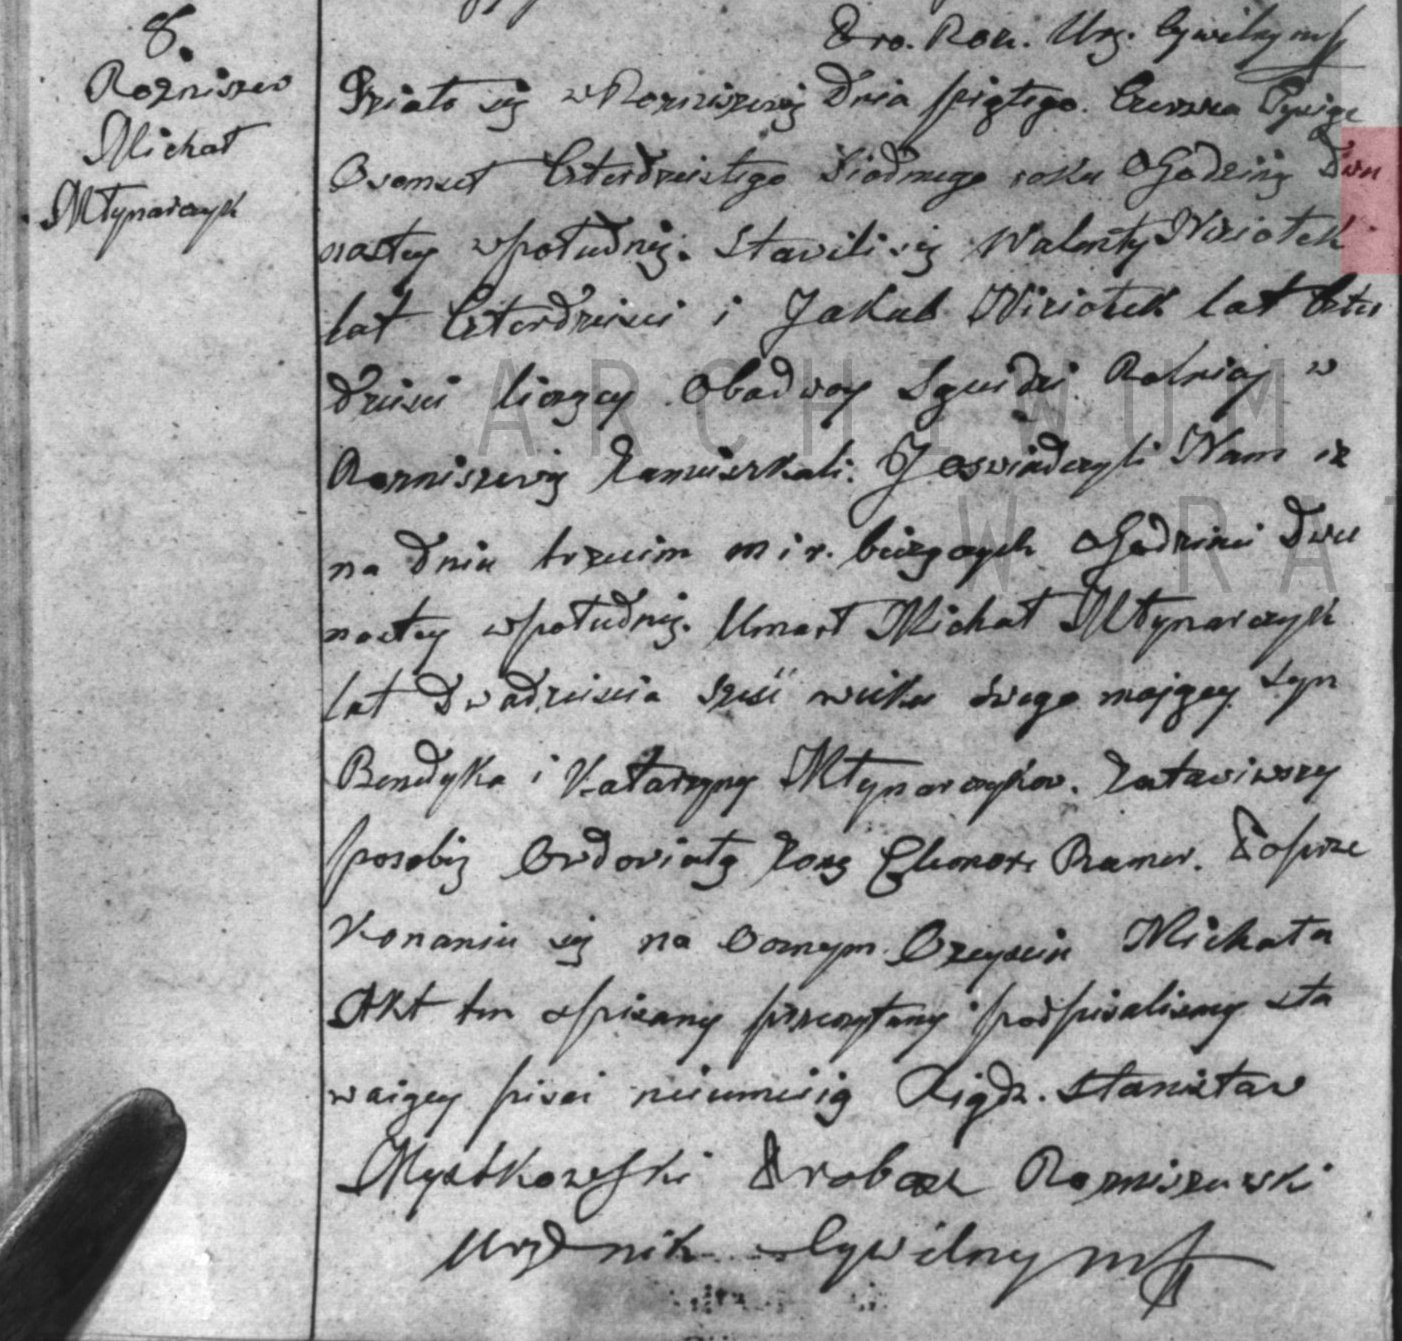 8.
Rożniszew
Michał
Młynarczyk
Pro. Roz. Urz. Cywilny mp
Działo się w Rozniszewię Dnia piątego Czerwca Tysiąc
Osmset Czterdziestego Siodmego roku o Godzinię Dwu
nastey wpołudnię. Stawili się Walenty Niziołek
lat Czterdziesci i Jakub Niziołek lat Czter
dziesci liczący Obadway Sąsiedzi Rolnicy w
Rozniszewię Zamieszkali. I oswiadczyli Nam iz
na dniu trzecim m i r. bieżących o Godzinie Dwu
nastey wpołudnię. Umarł Michał Młynarczyk
lat Dwadziescia szesć wieku swego maiący Syn
Benedykta i Katarzyny Młynarczykow. Zostawiwszy
po sobię Owdowiałą Zonę Eleonorę Ramer. Po prze
konaniu się na Ocznym Zeysciu Michała
Akt ten spisany przeczytany podpisalismy sta
waiący pisac nieumieią Xiądz. Stanisław
Mystkowski Proboszcz Rozniszewski
Urzędnik Cywilny mp
ARCHIWUM
W RA